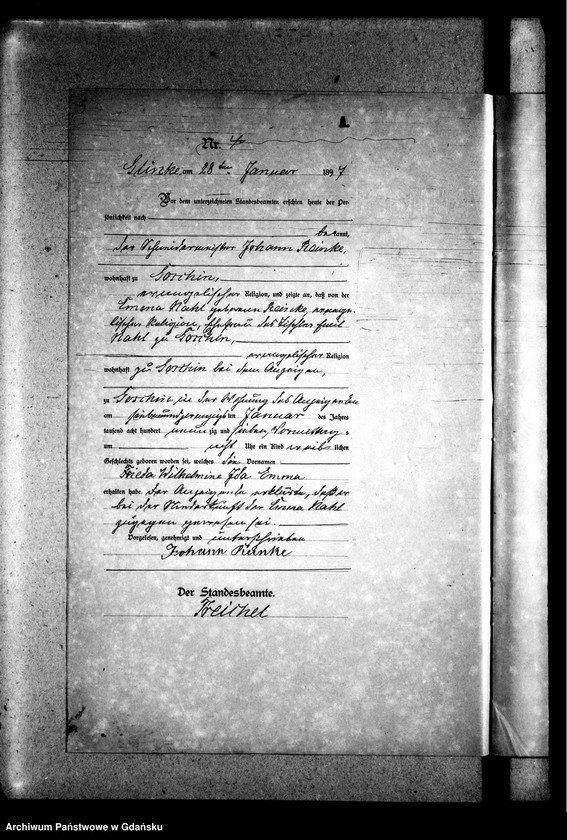 A.
Nr. 4
am 28ten Januar 1897
Vor dem unterzeichneten Standesbeamten erschien heute der Per-
sönlichkeit nach
bekannt,
der Schneidermeister Johann Reinke,
wohnhaft zu Goschin,
evangelischer Religion, und zeigte an, daß von der
Emma Nahl geborenen Reinke, evange-
lischer Religion, Ehefrau des Tischlers Emil
Nahl zu Goschin,
evangelischer Religion
wohnhaft zu Goschin bei dem Anzeigen,
zu Goschin in der Wohnung des Anzeigenden
am siebenundzwanzigsten Januar des Jahres
tausend acht hundert neunzig und sieben, Vormittags
um acht Uhr ein Kind weiblichen
Geschlechts geboren worden sei, welches die Vornamen
Frieda Wilhelmine Ida Emma
erhalten habe. Der Anzeigende erklärte, daß er
bei der Niederkunft der Emma Nahl
zugegen gewesen sei.
Vorgelesen, genehmigt und unterschrieben
Johann Reinke
Der Standesbeamte.
Treichel
Archiwum Państwowe w Gdańsku